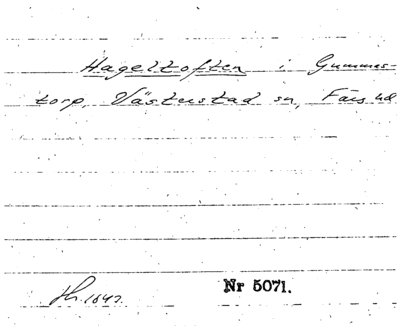 Hageltoften i Gummas-
torp, Västerstad sn, Färs hd
Nr 5071.